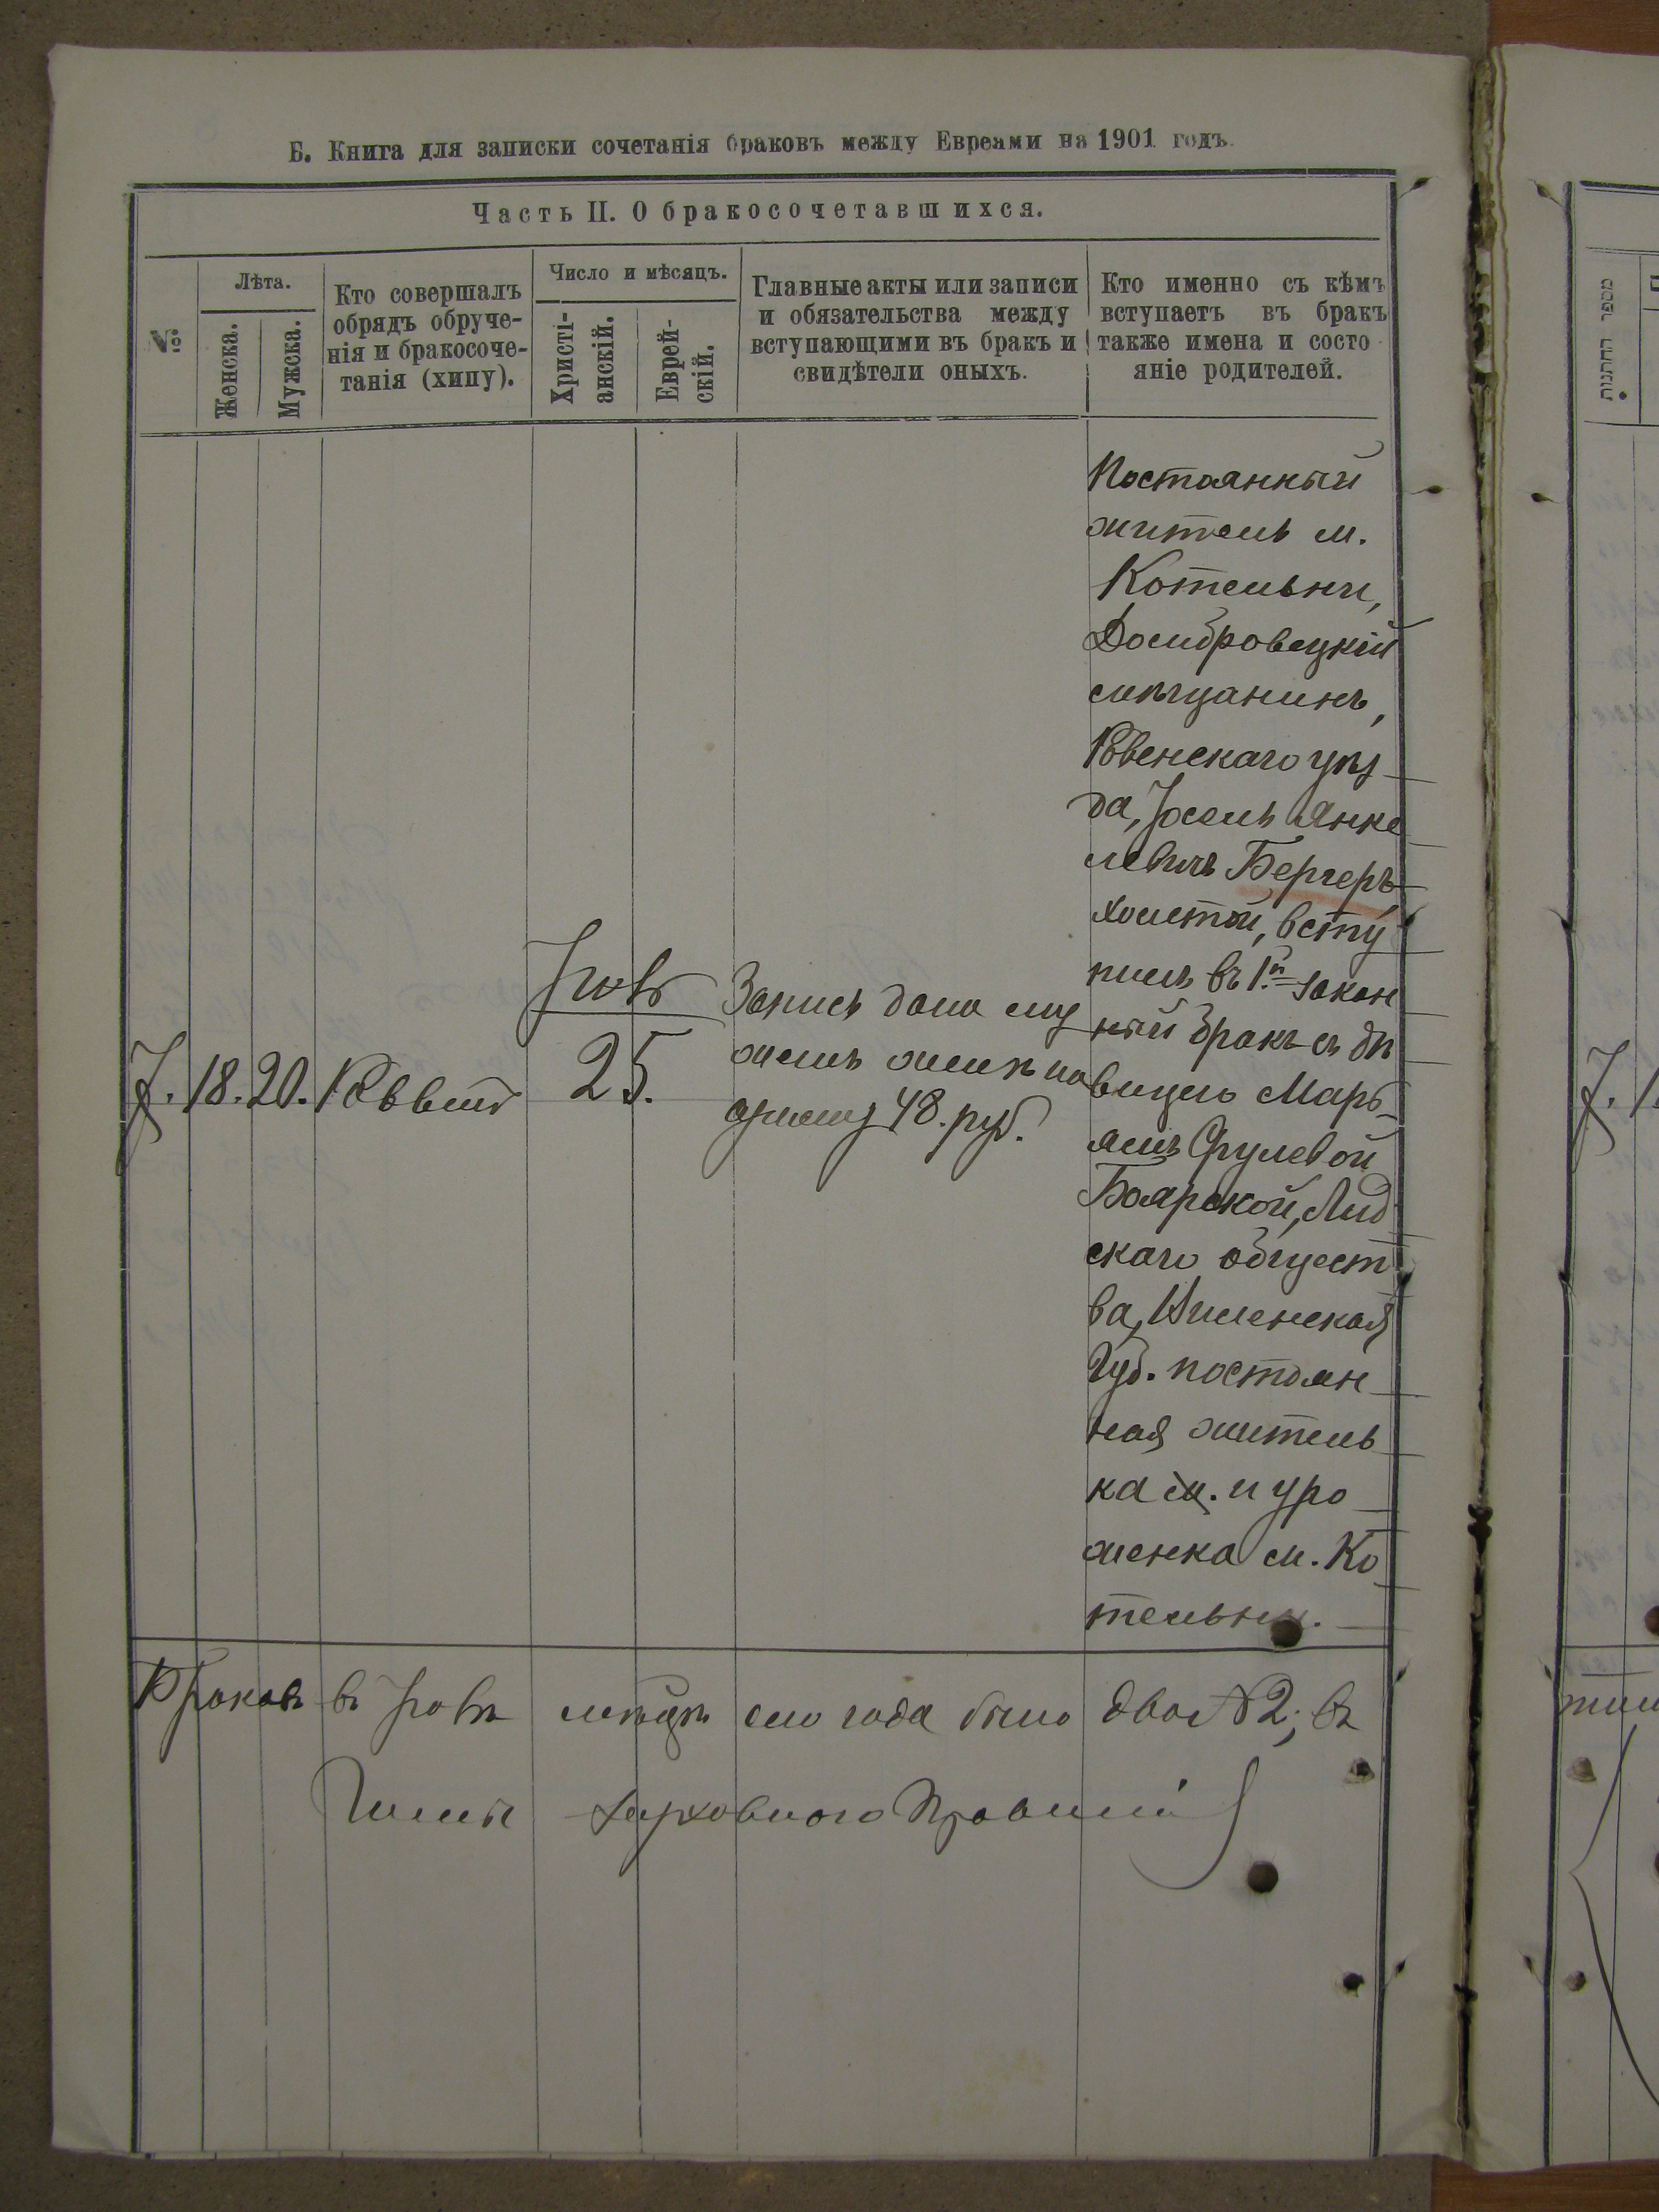 Б. Книга для записки сочетанія браковъ между Евреями на 1901 годъ.
Часть II. О бракосочетавшихся.
№
Лѣта.
Женска.
Мужска.
Кто совершалъ
обрядъ обруче-
нія и бракосоче-
танія (хипу).
Число и мѣсяцъ.
Христі-
анскій.
Еврей-
скій.
Главные акты или записи
и обязательства между
вступающими въ бракъ и
свидѣтели оныхъ.
Кто именно съ кѣмъ
вступаетъ въ бракъ
также имена и состо
яніе родителей.
7. 18. 20. Раввинъ
25.
Запись дана му
жемъ женѣ на
сумму 48. руб.
Постоянный
житель м.
Котельни,
Домбровецкій
мѣщанинъ,
Ровенскаго уѣз
да, Іосель Янке
левичъ Бергеръ,
холостой, всту
пилъ въ 1й закон
ный бракъ съ дѣ
вицею Марь
ямъ Срулевой
Боярской, Лид
скаго общест
ва, Виленской
Губ. постоян
ная житель
ка м. и уро
женка м. Ко
тельни.
Браковъ въ мѣсяцѣ сего года было два № 2; въ
מספר החתונות
7.